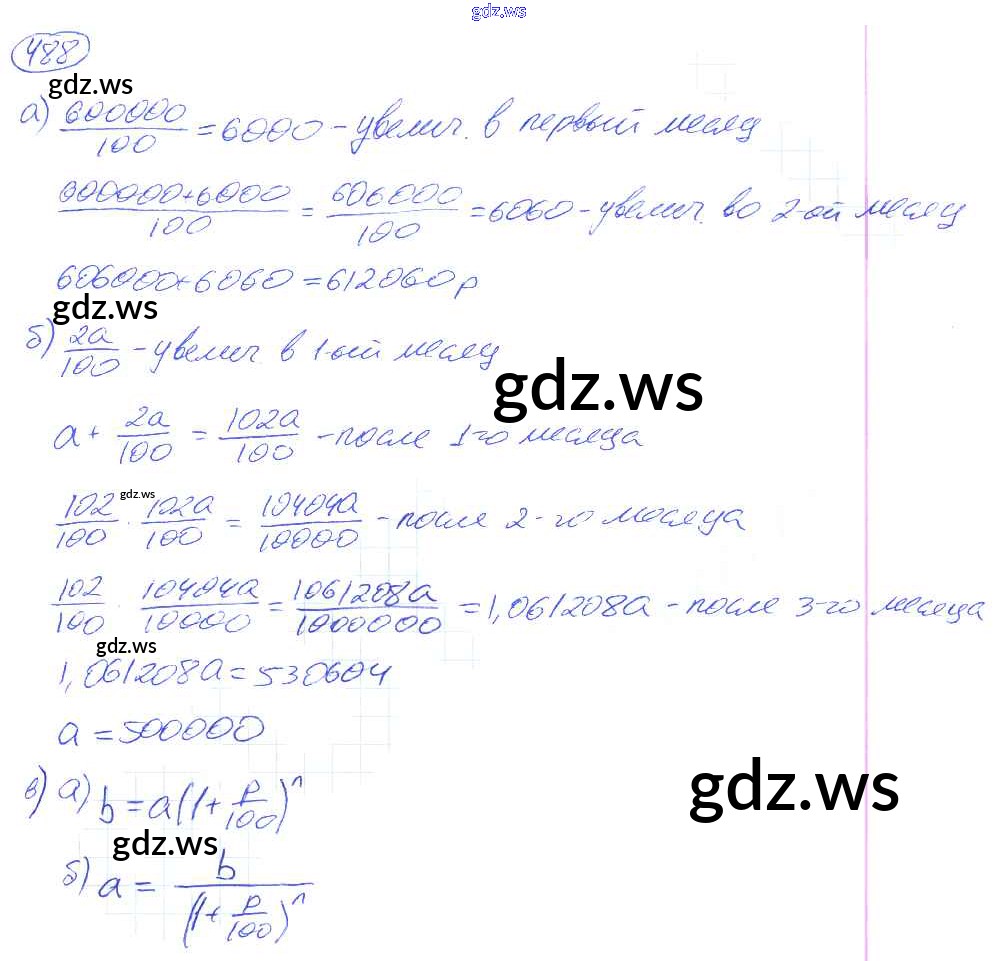 gdz.ws
488
gdz.ws
а) 600000/100 = 6000 - увелич. в первый месяц
600000+6000/100 = 606000/100 = 6060 - увелич. во 2-ой месяц
606000+6060 = 612060р
gdz.ws
б) 2a/100 - увелич. в 1-ый месяц
gdz.ws
a + 2a/100 = 102a/100 - после 1-го месяца
gdz.ws
102/100 · 102a/100 = 10404a/10000 - после 2-го месяца
102/100 · 10404a/10000 = 1061208a/1000000 = 1,061208a - после 3-го месяца
gdz.ws
1,061208a = 530604
a = 500000
gdz.ws
в) а) b = a(1 + p/100)^n
gdz.ws
б) a = b/(1 + p/100)^n